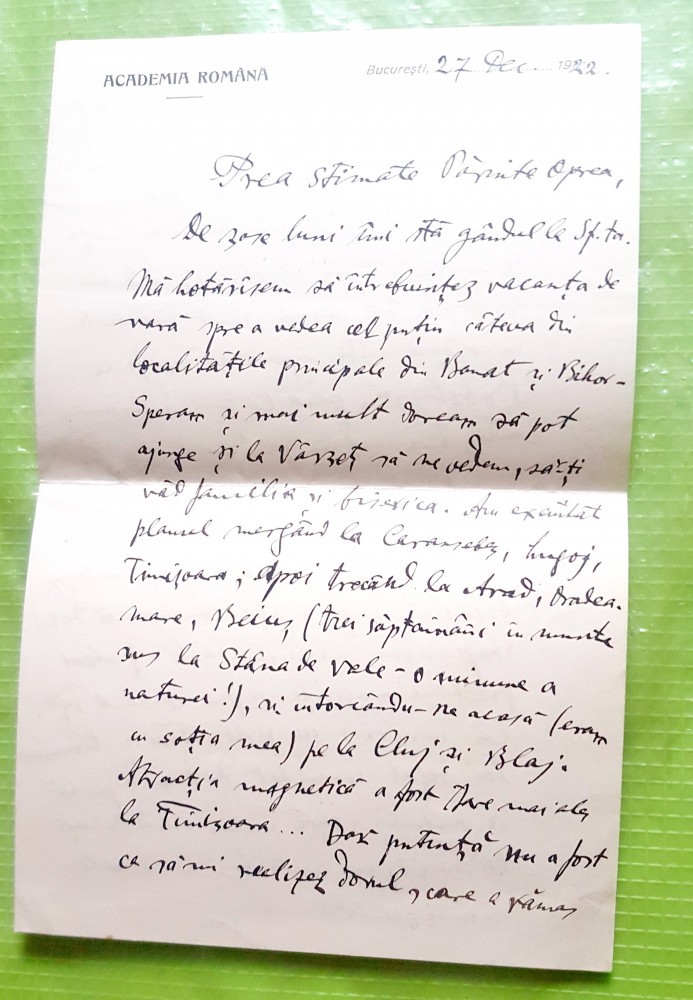 ACADEMIA ROMÂNĂ
București, 27 Dec. 1922.
Prea stimate Părinte Oprea,
De șase luni îmi stă gândul la Sf. ta.
Mă hotărîsem să întrebuințez vacanța de
vară spre a vedea cel puțin câteva din
localitățile principale din Banat și Bihor –
Speram și mai mult doream să pot
ajunge și la Vârșeț să ne vedem, să-ți
văd familia și biserica. Am executat
planul mergând la Caransebeș, Lugoj,
Timișoara; apoi trecând la Arad, Oradea-
mare, Beiuș, (trei săptămâni în munte
sus la Stâna de vale – o minune a
naturei!), și întorcându-ne acasă (eram
cu soția mea) pe la Cluj și Blaj.
Atracția magnetică a fost mare mai ales
la Timișoara... Dar putință nu a fost
ca să-mi realizez dorul, care a rămas